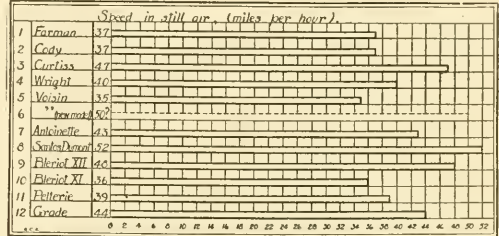 Speed in still air, (miles per hour).
1 Farman 37
2 Cody 37
3 Curtiss 47
4 Wright 40
5 Voisin 35
6 " (new model) 50?
7 Antoinette 43
8 Santos Dumont 52
9 Bleriot XII 48
10 Bleriot XI 36
11 Pelterie 39
12 Grade 44
0 2 4 6 8 10 12 14 16 18 20 22 24 26 28 30 32 34 36 38 40 42 44 46 48 50 52